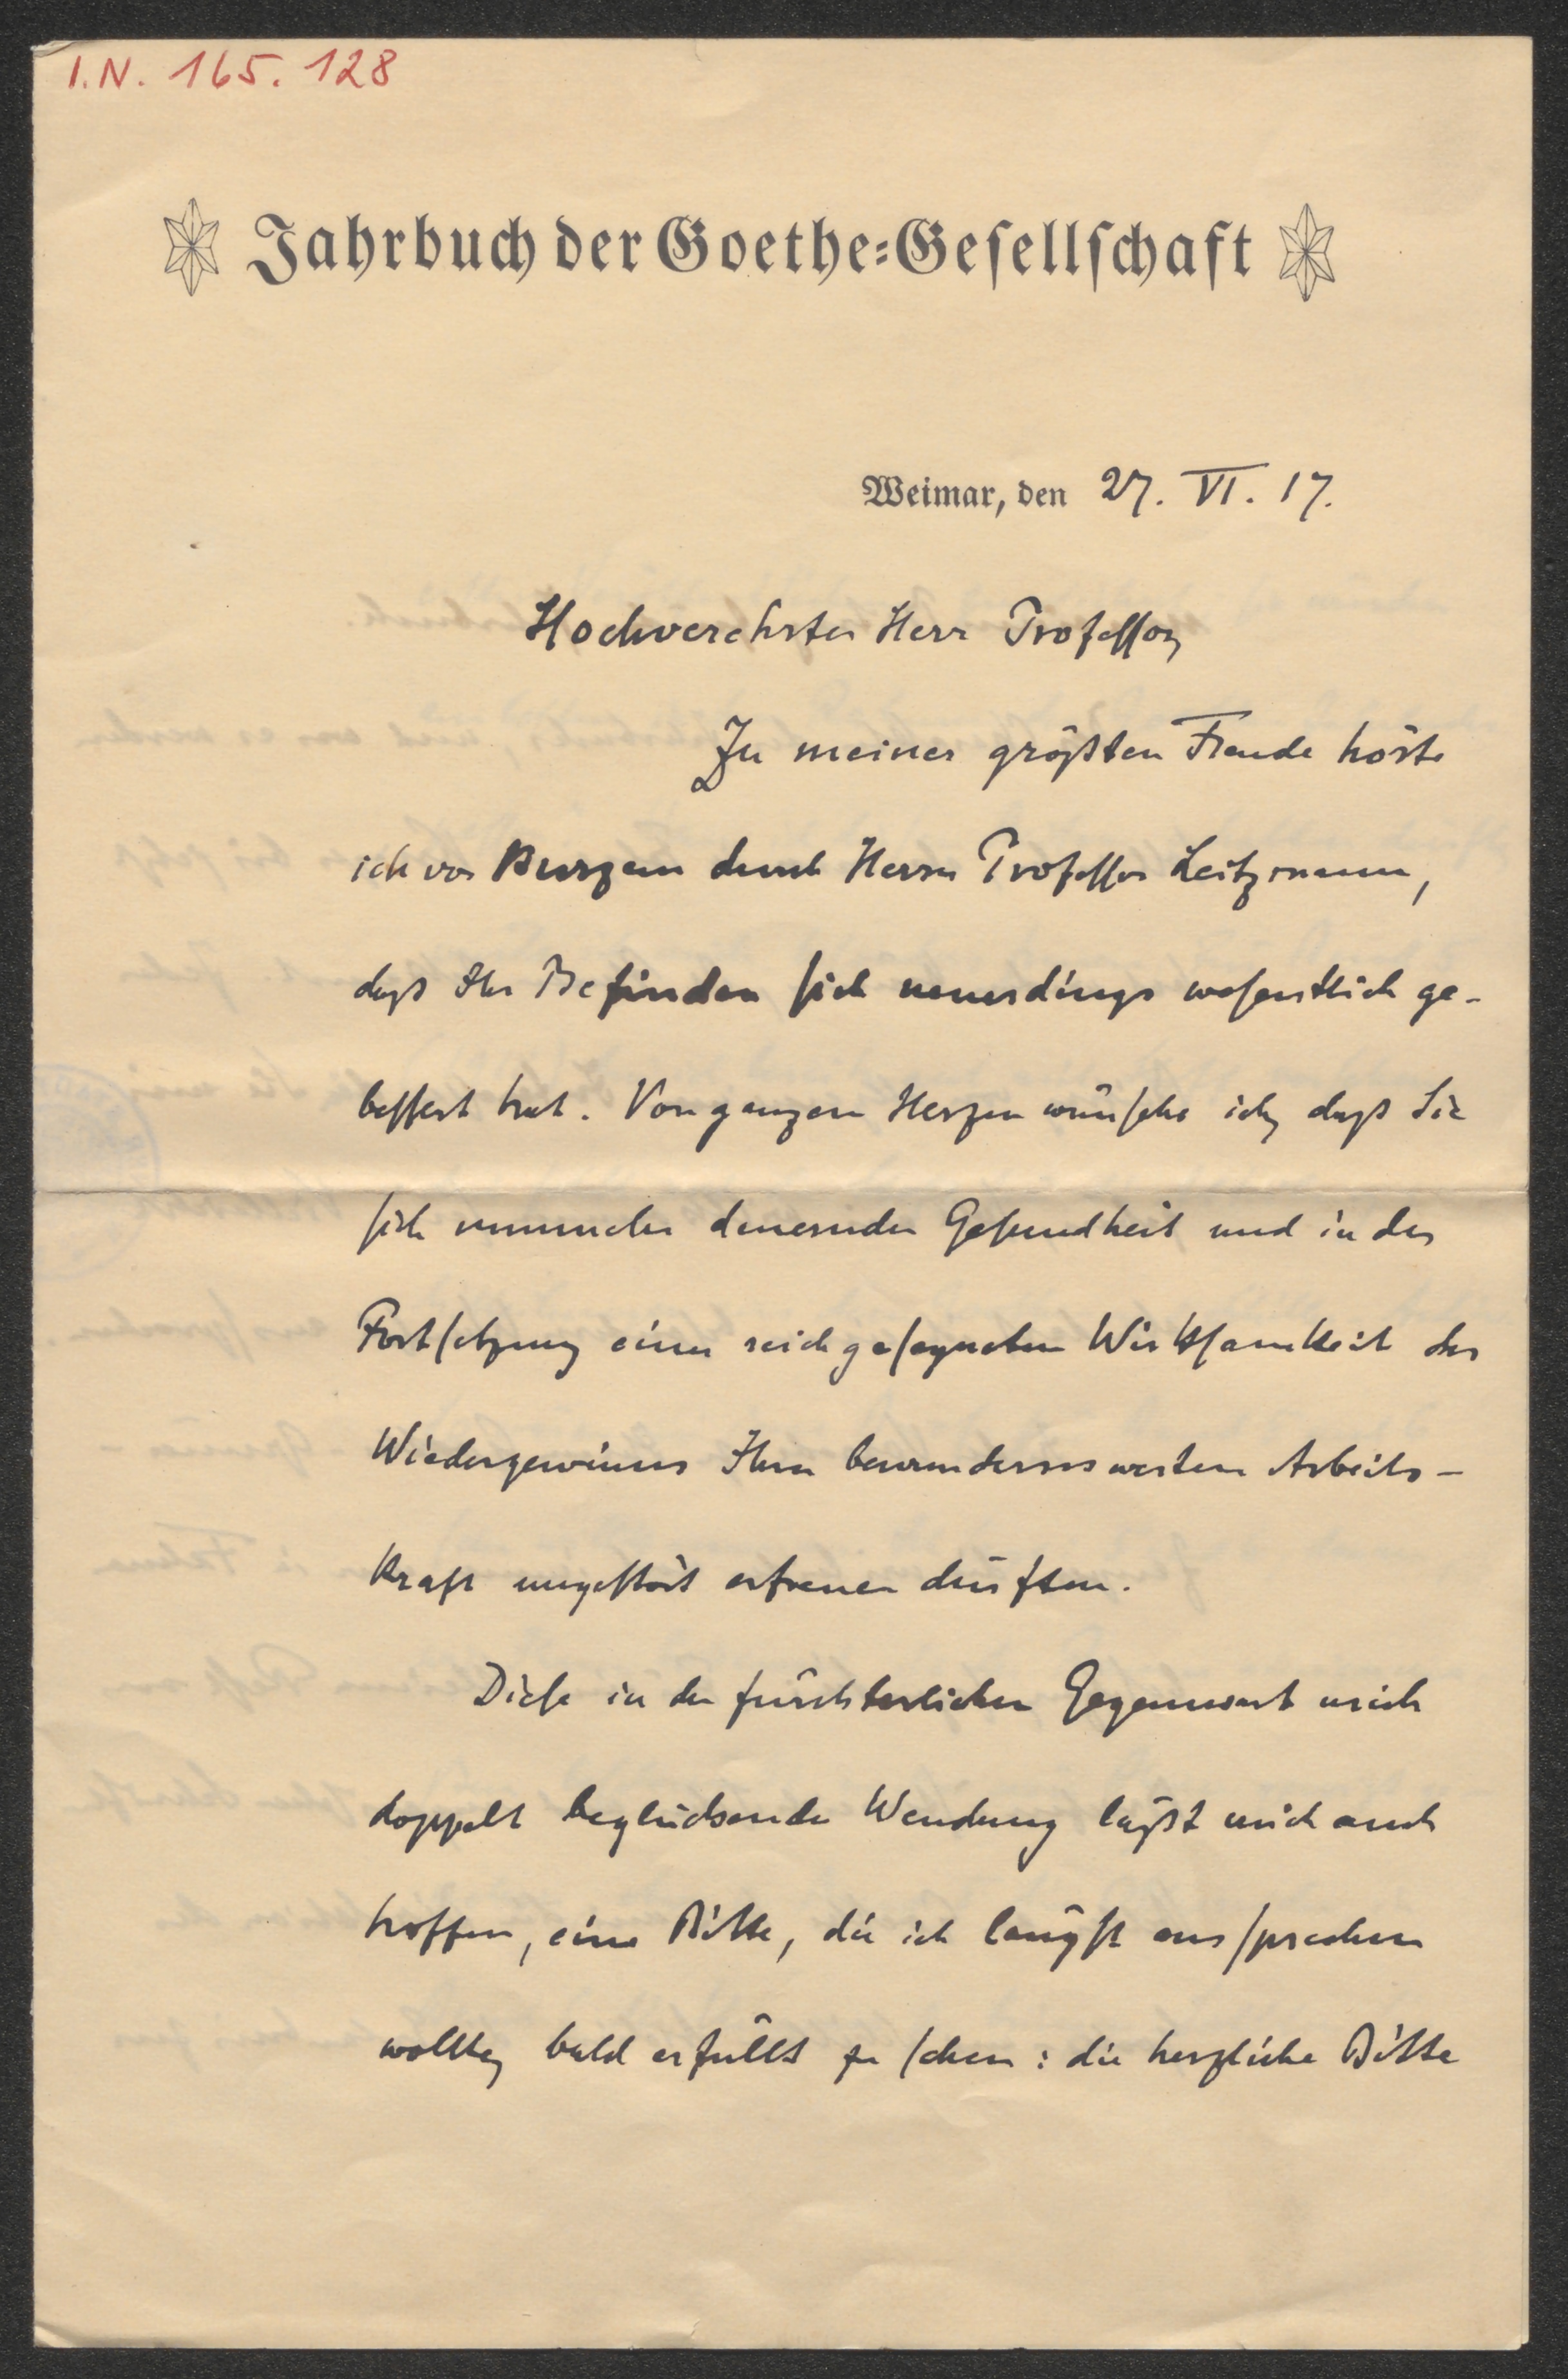 I.N. 165.128
Jahrbuch der Goethe-Gesellschaft
Weimar, den 27. VI. 17.
Hochverehrter Herr Professor,
Zu meiner größten Freude hörte
ich vor Kurzem durch Herrn Professor Leitzmann,
daß Ihr Befinden sich neuerdings wesentlich ge-
bessert hat. Von ganzem Herzen wünsche ich, daß Sie
sich nunmehr dauernder Gesundheit und in der
Fortsetzung einer reich gesegneten Wirksamkeit des
Wiedergewinnes Ihrer bewundernswerten Arbeits-
kraft ungestört erfreuen dürften.
Diese in der fürchterlichen Gegenwart mich
doppelt beglückende Wendung läßt mich auch
hoffen, eine Bitte, die ich längst aussprechen
wollte, bald erfüllt zu sehen: die herzliche Bitte